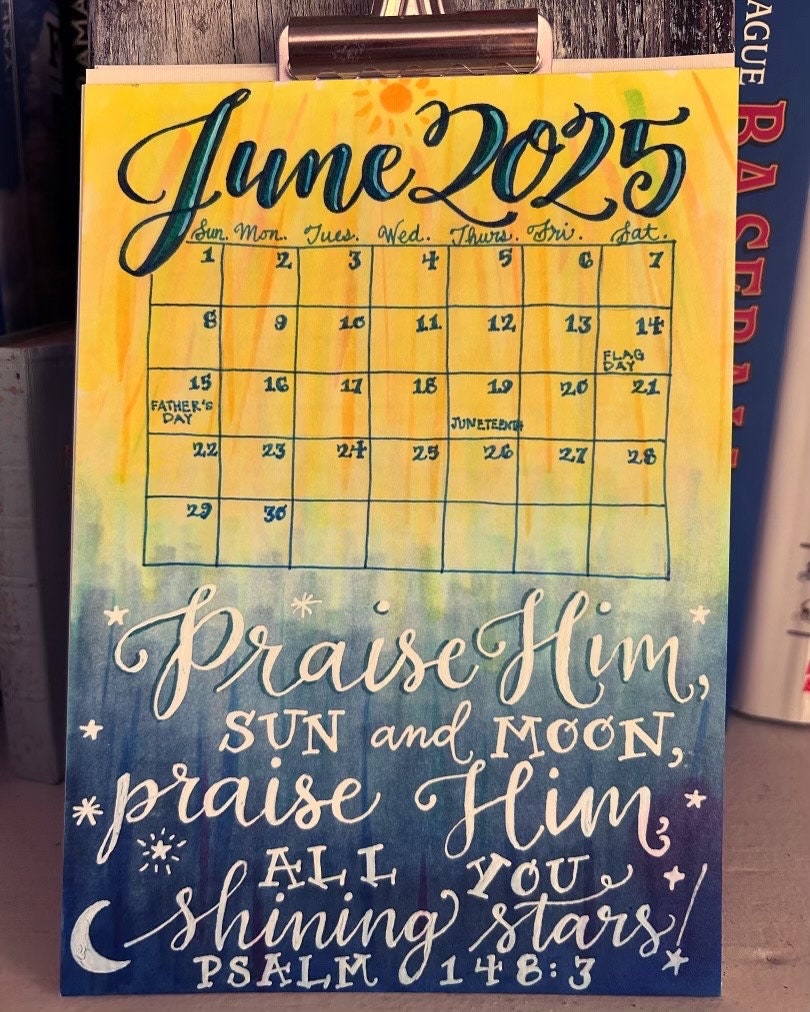 June 2025
Sun. Mon. Tues. Wed. Thurs. Fri. Sat.
1 2 3 4 5 6 7
8 9 10 11 12 13 14
FLAG
DAY
15 16 17 18 19 20 21
FATHER'S
DAY
JUNETEENTH
22 23 24 25 26 27 28
29 30
Praise Him,
SUN and MOON,
praise Him,
ALL YOU
shining stars!
PSALM 148:3
AGUE